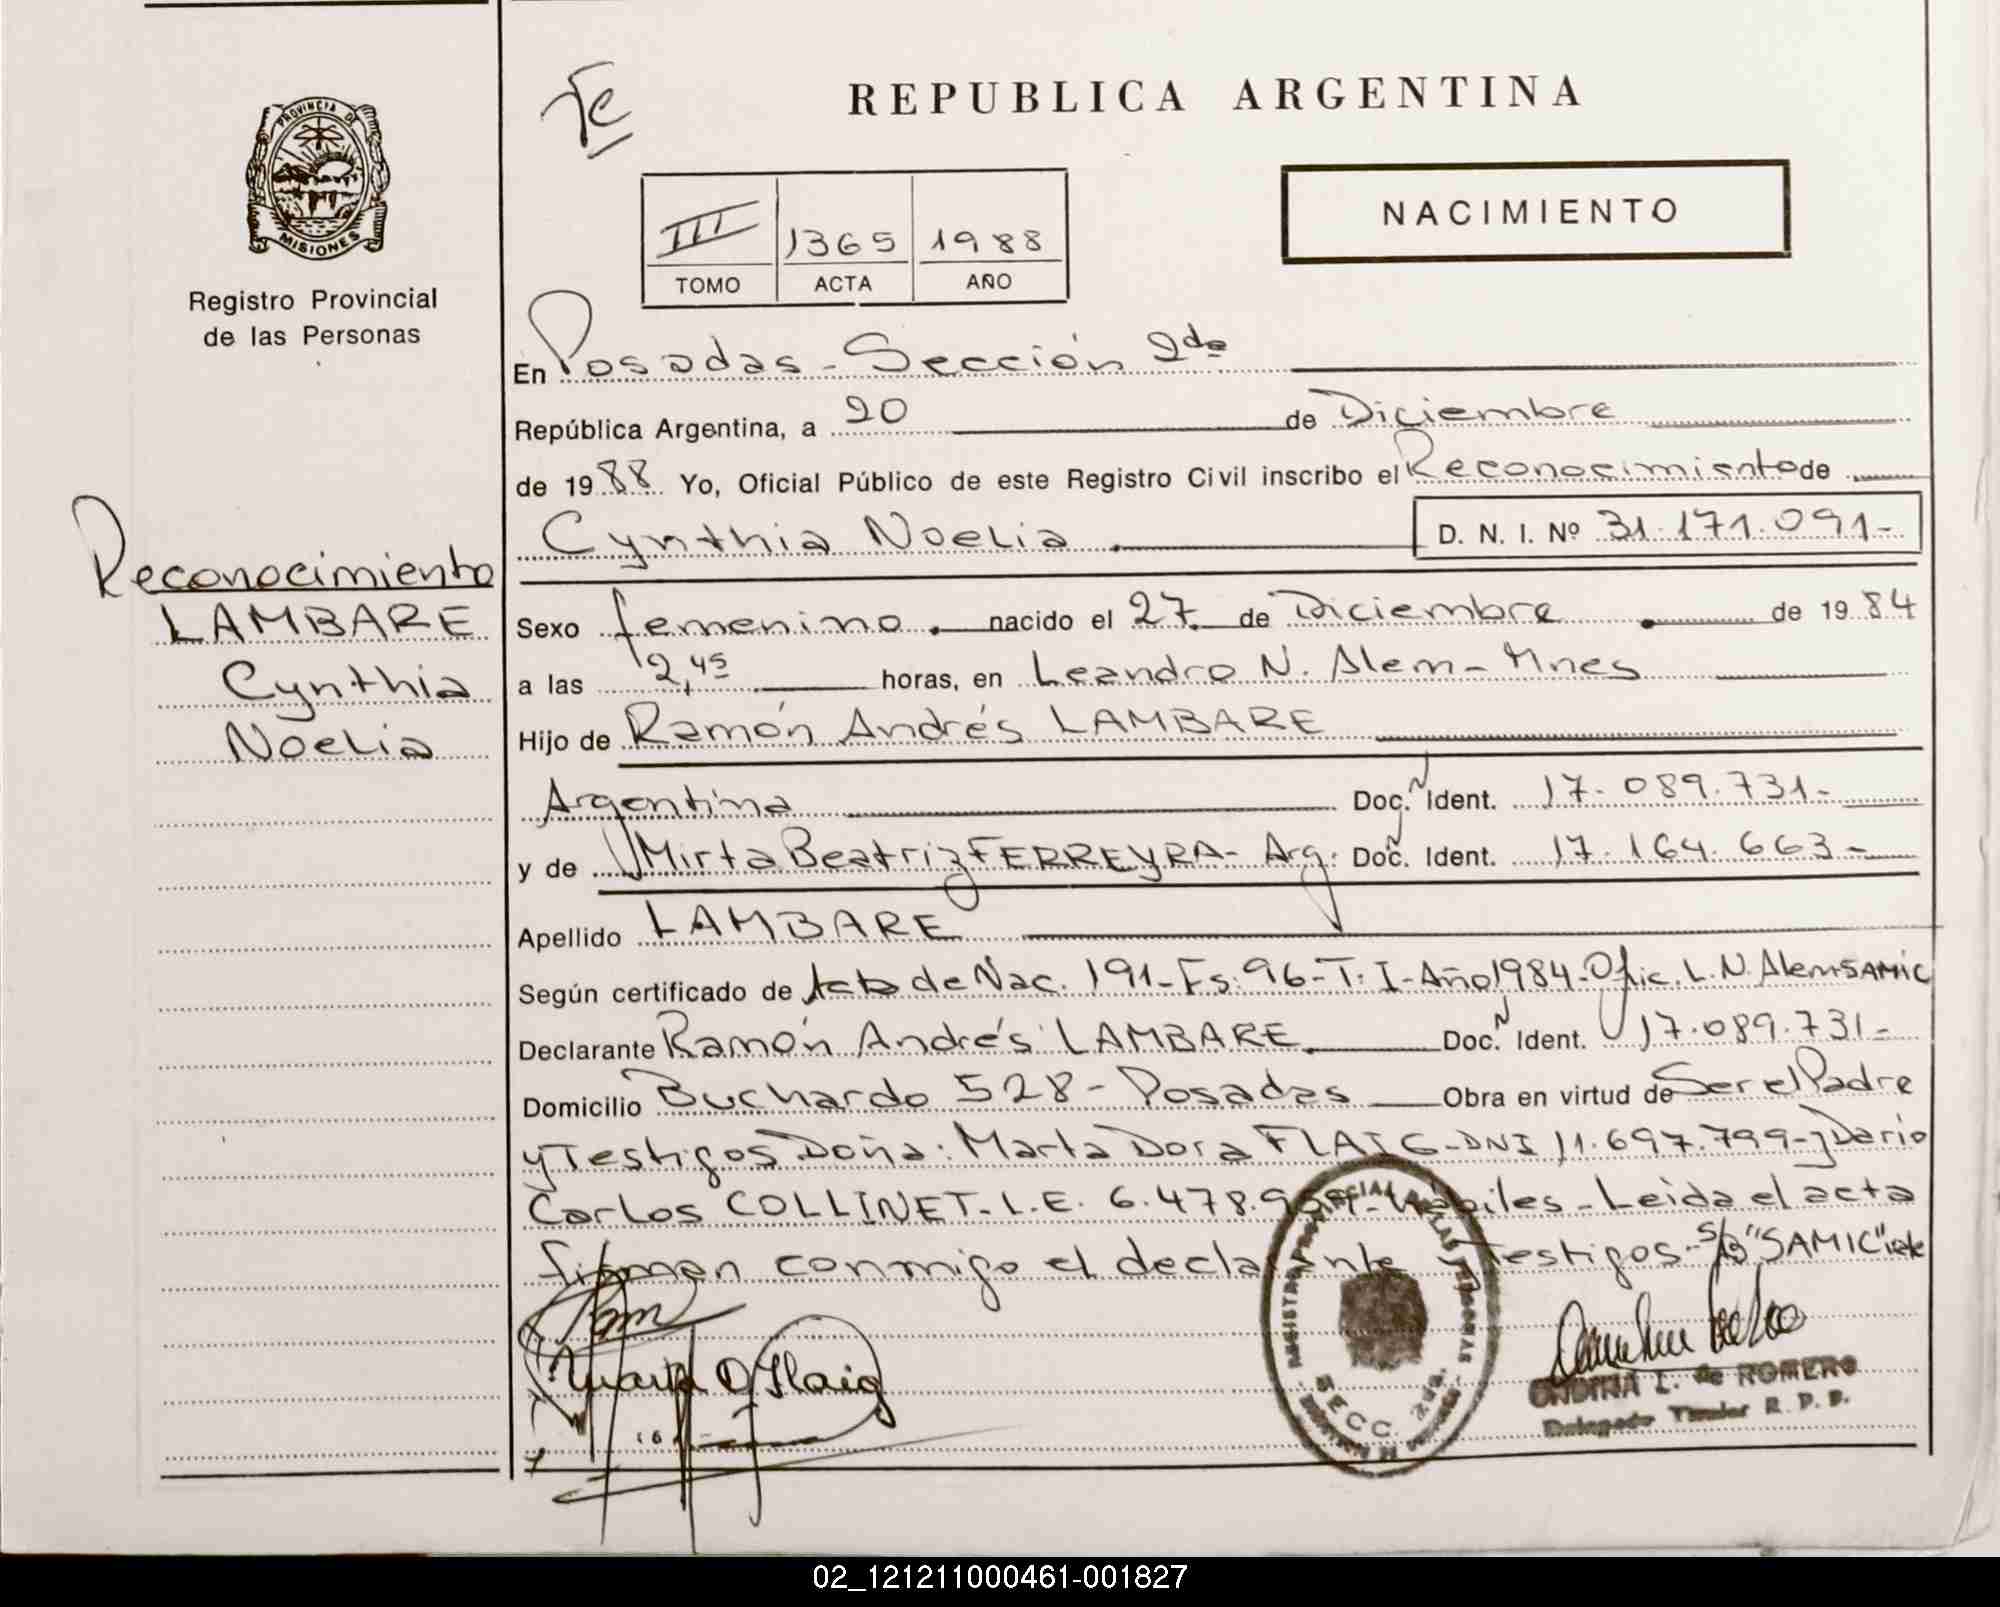 Fe
REPUBLICA ARGENTINA
PROVINCIA DE
MISIONES
Registro Provincial
de las Personas
III 1365 1988
TOMO ACTA AÑO
NACIMIENTO
En Posadas - Sección 2da
República Argentina, a 20 de Diciembre
de 1988 Yo, Oficial Público de este Registro Civil inscribo el Reconocimiento de
Cynthia Noelia D. N. I. Nº 31.171.091-
Reconocimiento
LAMBARE
Cynthia
Noelia
Sexo femenino. nacido el 27 de Diciembre de 1984
a las 2,45 horas, en Leandro N. Alem - Mnes
Hijo de Ramón Andrés LAMBARE
Argentina Doc. Ident. 17.089.731-
y de Mirta Beatriz FERREYRA - Arg. Doc. Ident. 17.164.663-
Apellido LAMBARE
Según certificado de Acta de Nac. 191-Fs. 96-T. I-Año 1984-Ofic. L.N. Alem SAMIC
Declarante Ramón Andrés LAMBARE Doc. Ident. 17.089.731-
Domicilio Buchardo 528 - Posadas Obra en virtud de Ser el Padre
y Testigos Doña: Marta Dora FLAIG-DNI 11.697.799-y Dario
Carlos COLLINET-L.E. 6.478. hábiles - Leida el acta
firman conmigo el declarante y Testigos - S/B "SAMIC" vale
Marta D Flaig
SECC 2da.
ONDINA L. de ROMERO
Delegado Titular R. P. P.
02_121211000461-001827